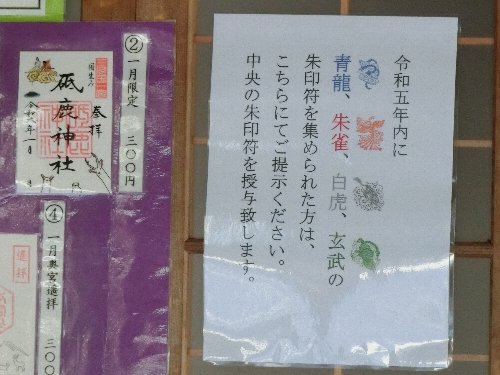 令和五年内に
青龍、朱雀、白虎、玄武の
朱印符を集められた方は、
こちらにてご提示ください。
中央の朱印符を授与致します。
②一月限定 三〇〇円
奉拝
砥鹿神社
国生み
④一月奥宮遥拝 三〇
遥拝